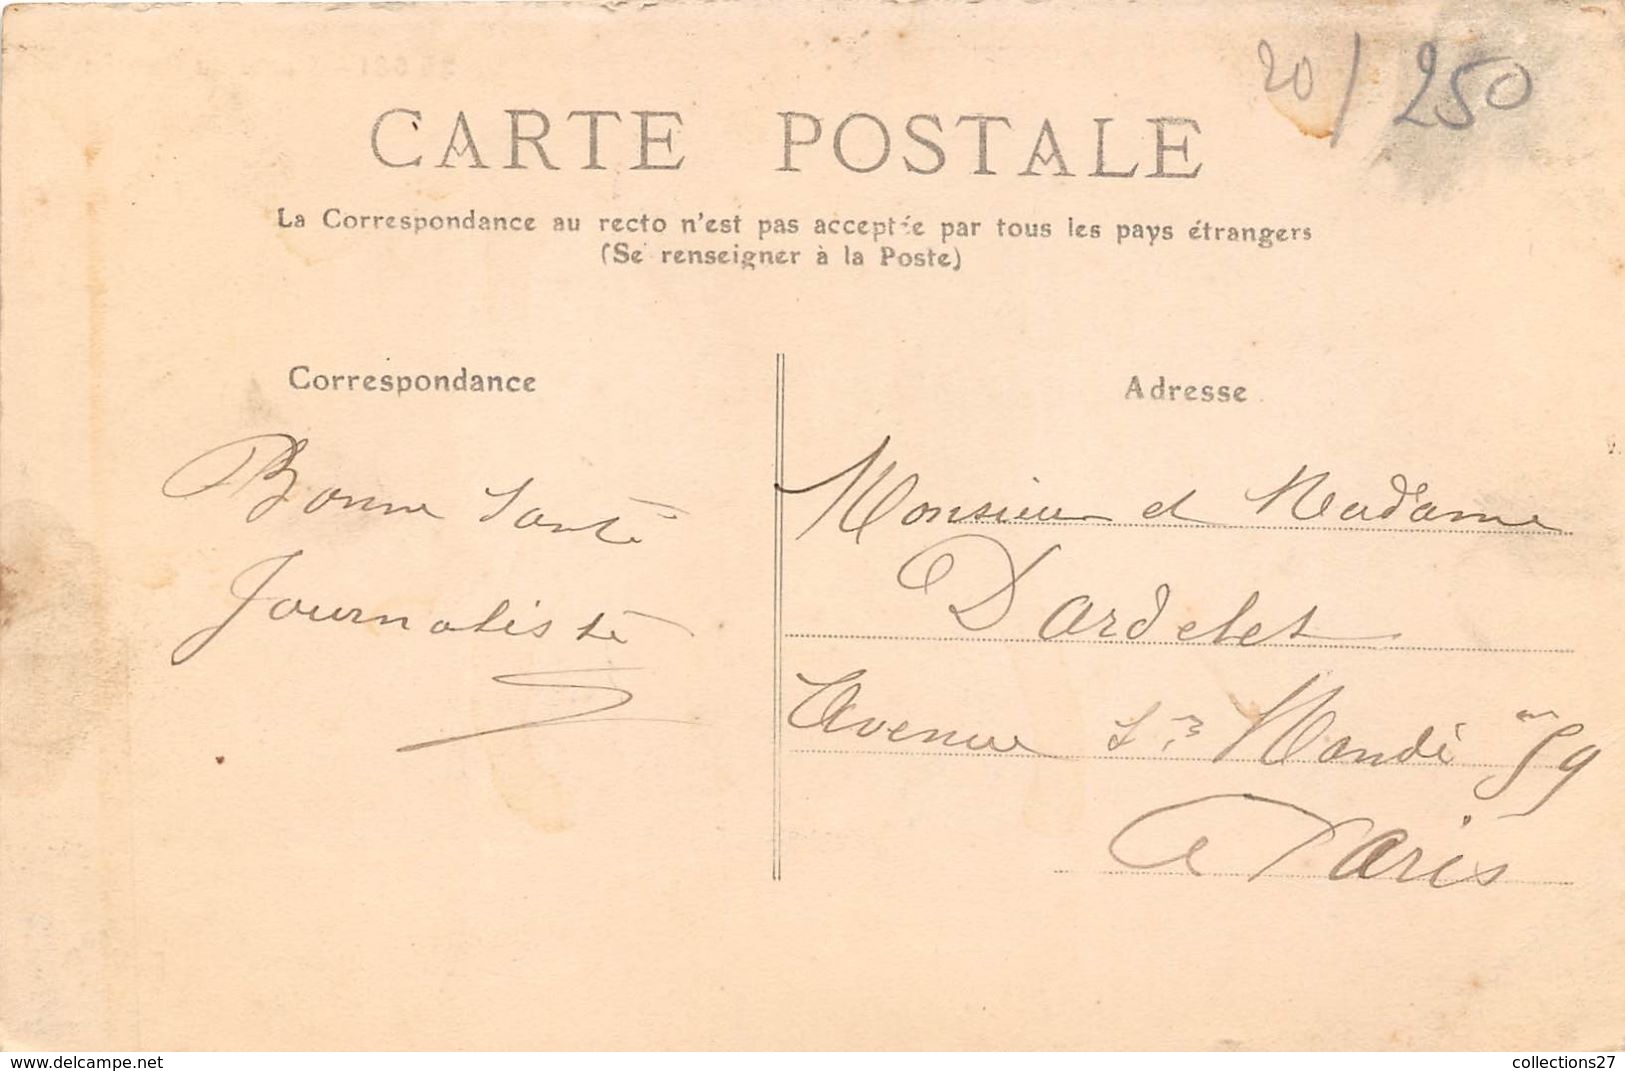 20/ 250
CARTE POSTALE
La Correspondance au recto n'est pas acceptée par tous les pays étrangers
(Se renseigner à la Poste)
Correspondance
Adresse
Bonne Santé
Journaliste
Monsieur et Madame
Dardelet
Avenue St Mandé n 59
A Paris
www.delcampe.net
collections27